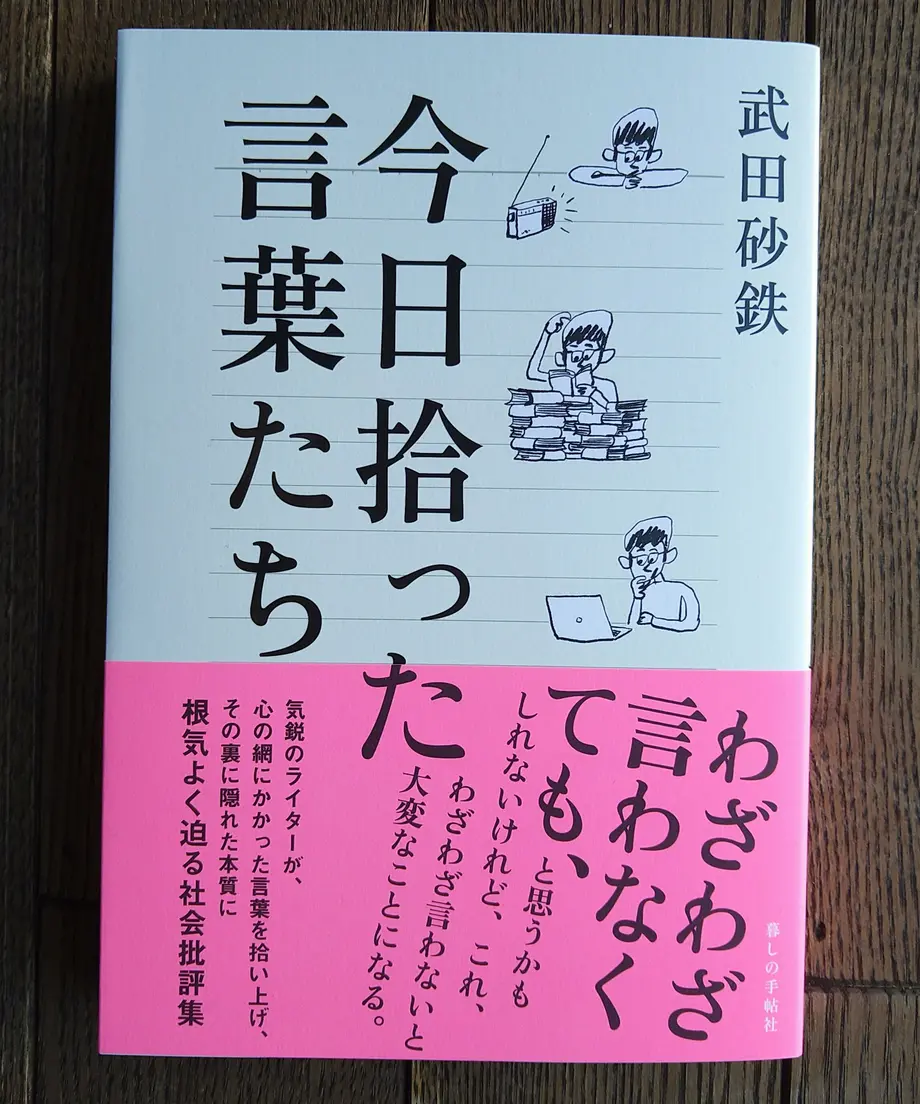 武田砂鉄
今日拾った
言葉たち
わざわざ
言わなく
ても、と思うかも
しれないけれど、これ、
わざわざ言わないと
大変なことになる。
気鋭のライターが、
心の網にかかった言葉を拾い上げ、
その裏に隠れた本質に
根気よく迫る社会批評集
暮しの手帖社